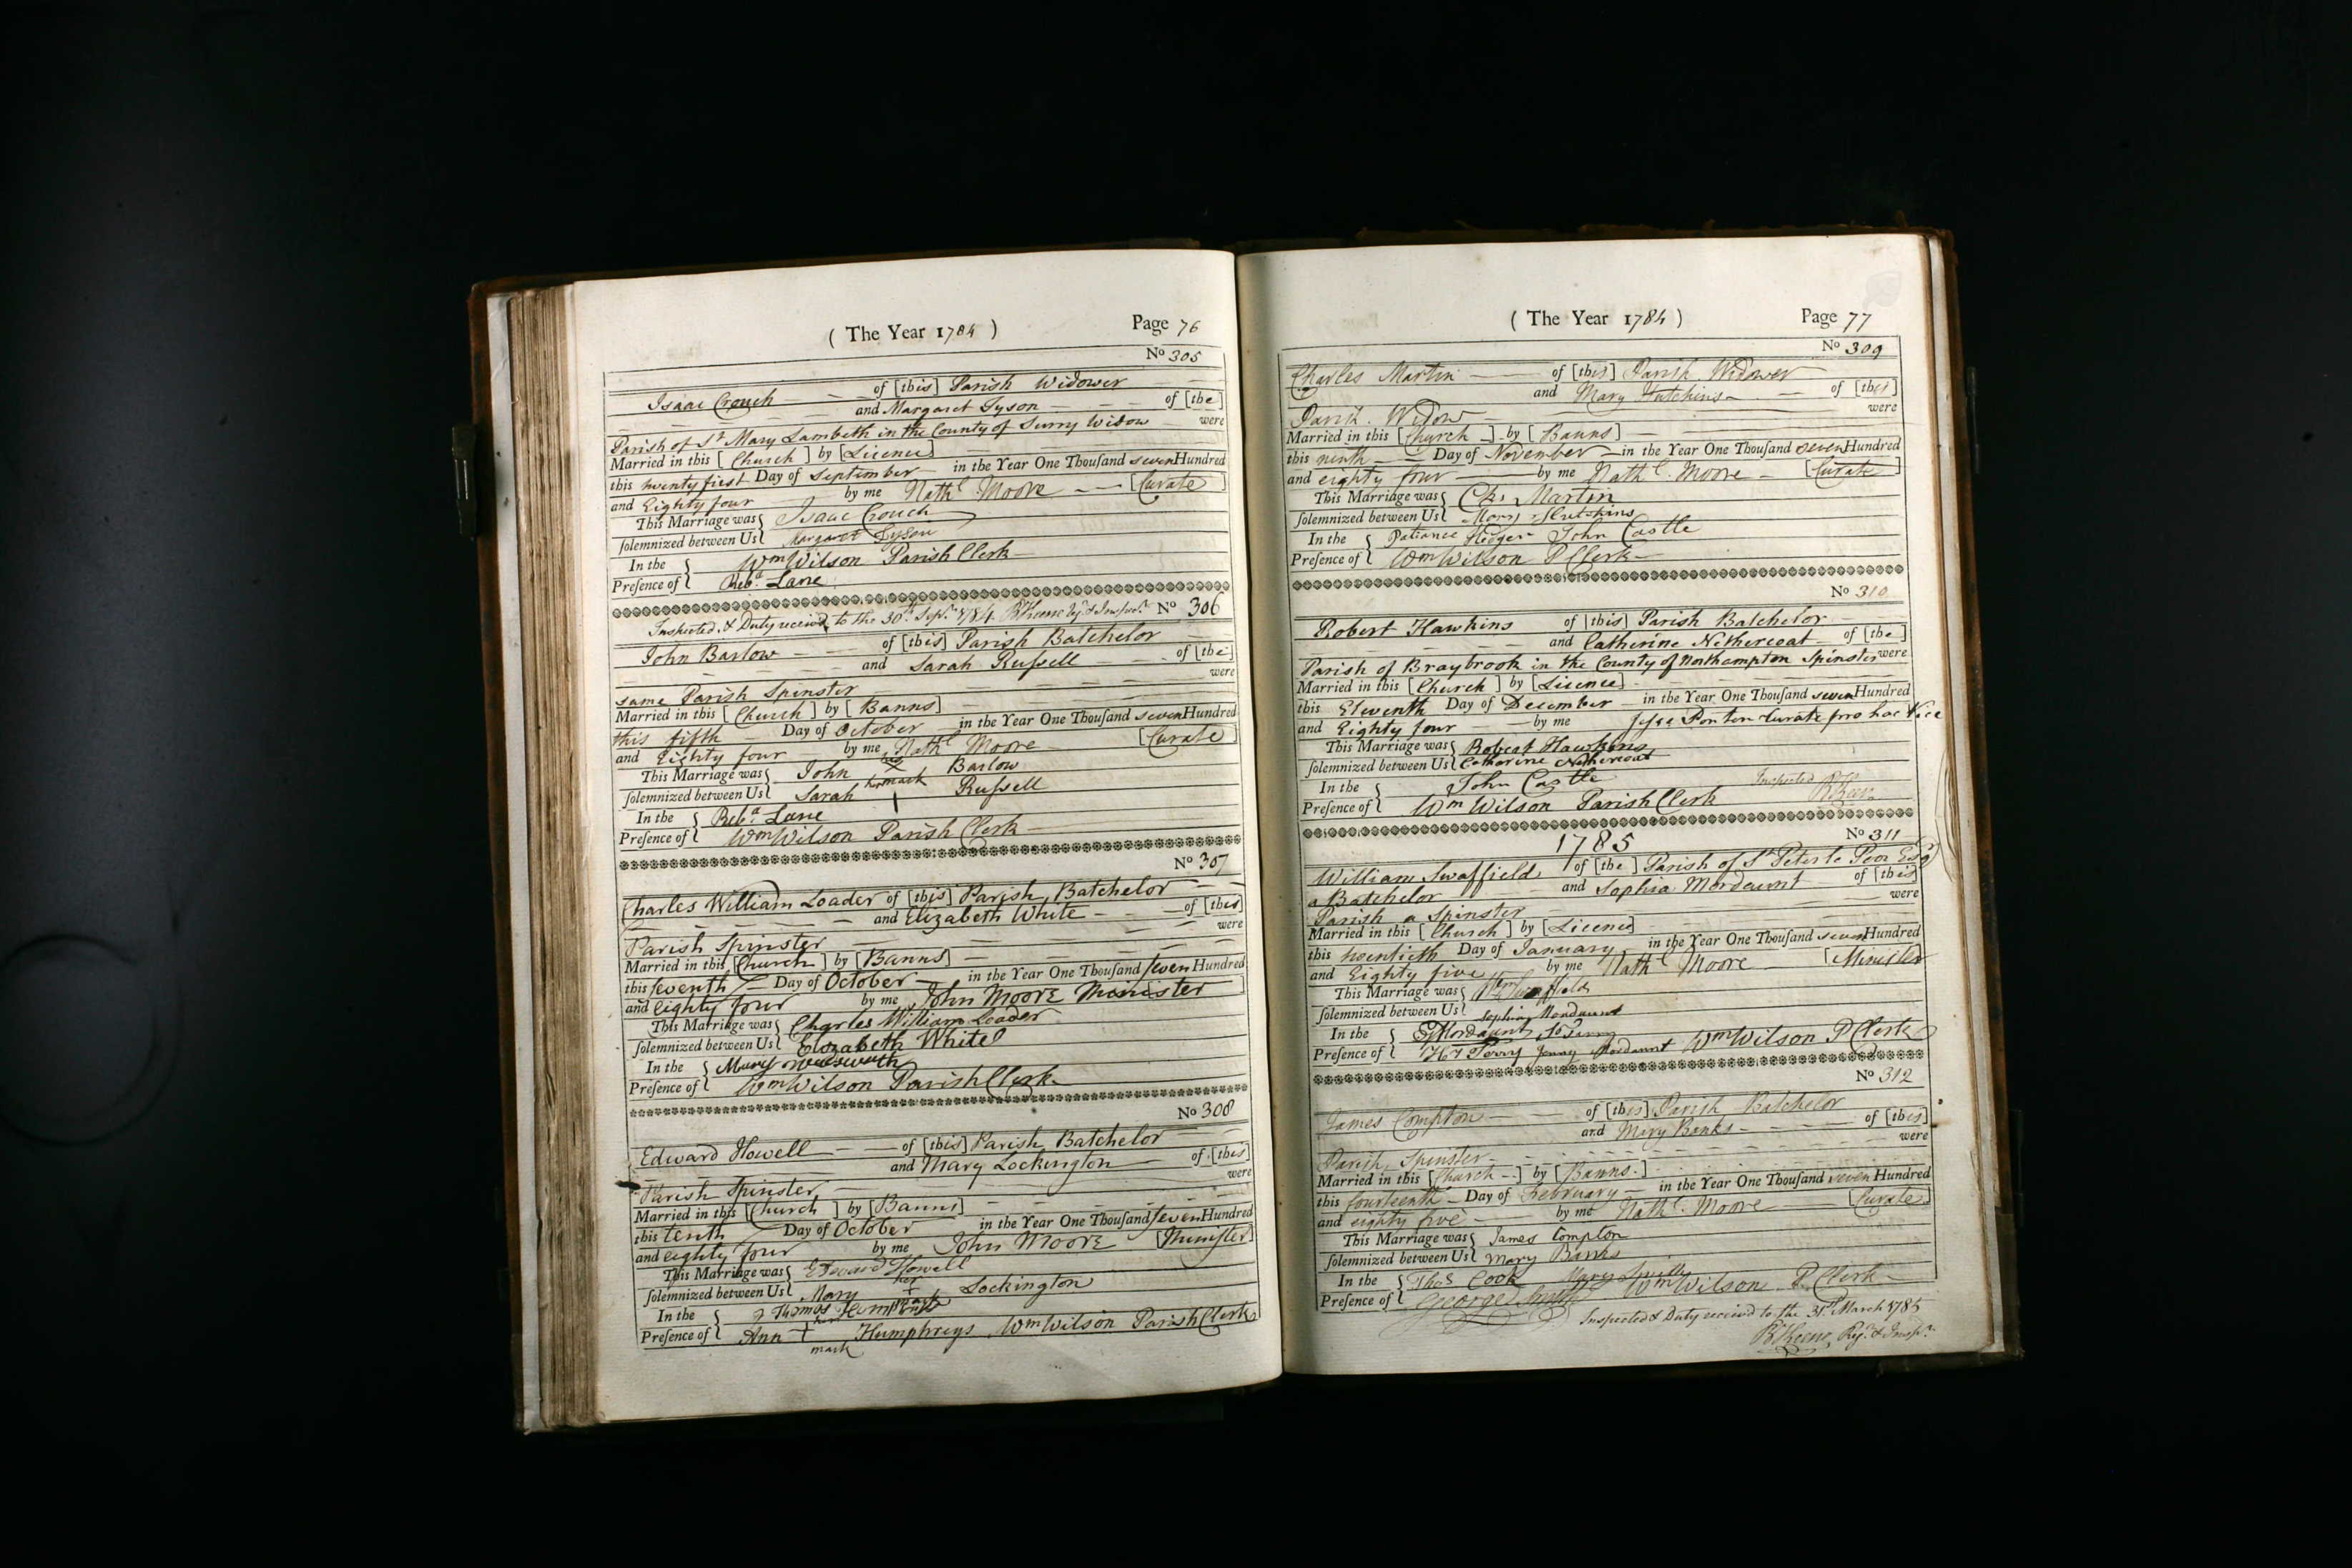 ( The Year 1784 ) Page 76
No 305
Isaac Crouch of [this] Parish Widower
and Margaret Tyson of [the]
Parish of St Mary Lambeth in the County of Surry Widow were
Married in this [Church] by [Licence]
this twenty first Day of September in the Year One Thouſand seven Hundred
and Eighty four by me Nathl. Moore [Curate]
This Marriage was Isaac Crouch
ſolemnized between Us Margaret Tyson
In the Wm Wilson Parish Clerk
Preſence of Reba. Lane
Inspected & Duty received to the 30th Sepr. 1784 No 306
John Barlow of [this] Parish Batchelor
and Sarah Ruſsell of [the]
same Parish Spinster were
Married in this [Church] by [Banns]
this fifth Day of October in the Year One Thouſand seven Hundred
and Eighty four by me Nathl Moore [Curate]
This Marriage was John his X mark Barlow
ſolemnized between Us Sarah her Ruſsell
In the Reba. Lane
Preſence of Wm Wilson Parish Clerk
No 307
Charles William Loader of [this] Parish, Batchelor
and Elizabeth White of [this]
Parish Spinster were
Married in this [Church] by [Banns]
this ſeventh Day of October in the Year One Thouſand ſeven Hundred
and eighty four by me John Moore Minister
This Marriage was Charles William Loader
ſolemnized between Us Elizabeth White
In the Mary
Preſence of Wm Wilson Parish Clerk
No 308
Edward Howell of [this] Parish, Batchelor
and Mary Lockington of [this]
Parish Spinster were
Married in this [Church] by [Banns]
this tenth Day of October in the Year One Thouſand ſeven Hundred
and eighty four by me John Moore [Miniſter]
This Marriage was Edward Howell
ſolemnized between Us Mary her + Lockington
In the Thomas
Preſence of Ann her + Humphreys Wm Wilson Parish Clerk
mark
( The Year 1784 ) Page 77
No 309
Charles Martin of [this] Parish Widower
and Mary Hutchins of [this]
Parish Widow were
Married in this [Church] by [Banns]
this ninth Day of November in the Year One Thouſand seven Hundred
and eighty four by me Nathl. Moore [Curate]
This Marriage was Chs Martin
ſolemnized between Us Mary Hutchins
In the Patience John Castle
Preſence of Wm Wilson P Clerk
No 310
Robert Hawkins of [this] Parish Batchelor
and Catherine Nethercoat of [the]
Parish of Braybrook in the County of Northampton Spinster were
Married in this [Church] by [Licence]
this Eleventh Day of December in the Year One Thouſand seven Hundred
and Eighty four by me Curate pro hac Vice
This Marriage was Robert Hawkins
ſolemnized between Us Catherine Nethercoat
In the John Castle Inspected
Preſence of Wm Wilson Parish Clerk
1785 No 311
William Swaffield of [the] Parish of St Peter le Poor Esq
a Batchelor and Sophia Mordaunt of [this]
Parish a Spinster were
Married in this [Church] by [Licence]
this twentieth Day of January in the Year One Thouſand seven Hundred
and Eighty five by me Nathl Moore [Minister]
This Marriage was Wm Swaffield
ſolemnized between Us Sophia Mordaunt
In the Mordaunt
Preſence of Perry Jenny Mordaunt Wm Wilson P Clerk
No 312
James Compton of [this] Parish Batchelor
and Mary Banks of [this]
Parish, Spinster were
Married in this [Church] by [Banns]
this fourteenth Day of February in the Year One Thouſand seven Hundred
and eighty five by me Nathl. Moore [Curate]
This Marriage was James Compton
ſolemnized between Us Mary Banks
In the Thos Cook Mary Smith
Preſence of George Smith Wm Wilson P Clerk
Inspected & Duty received to the 31st March 1785
R Keene, Regr. & Inspr.